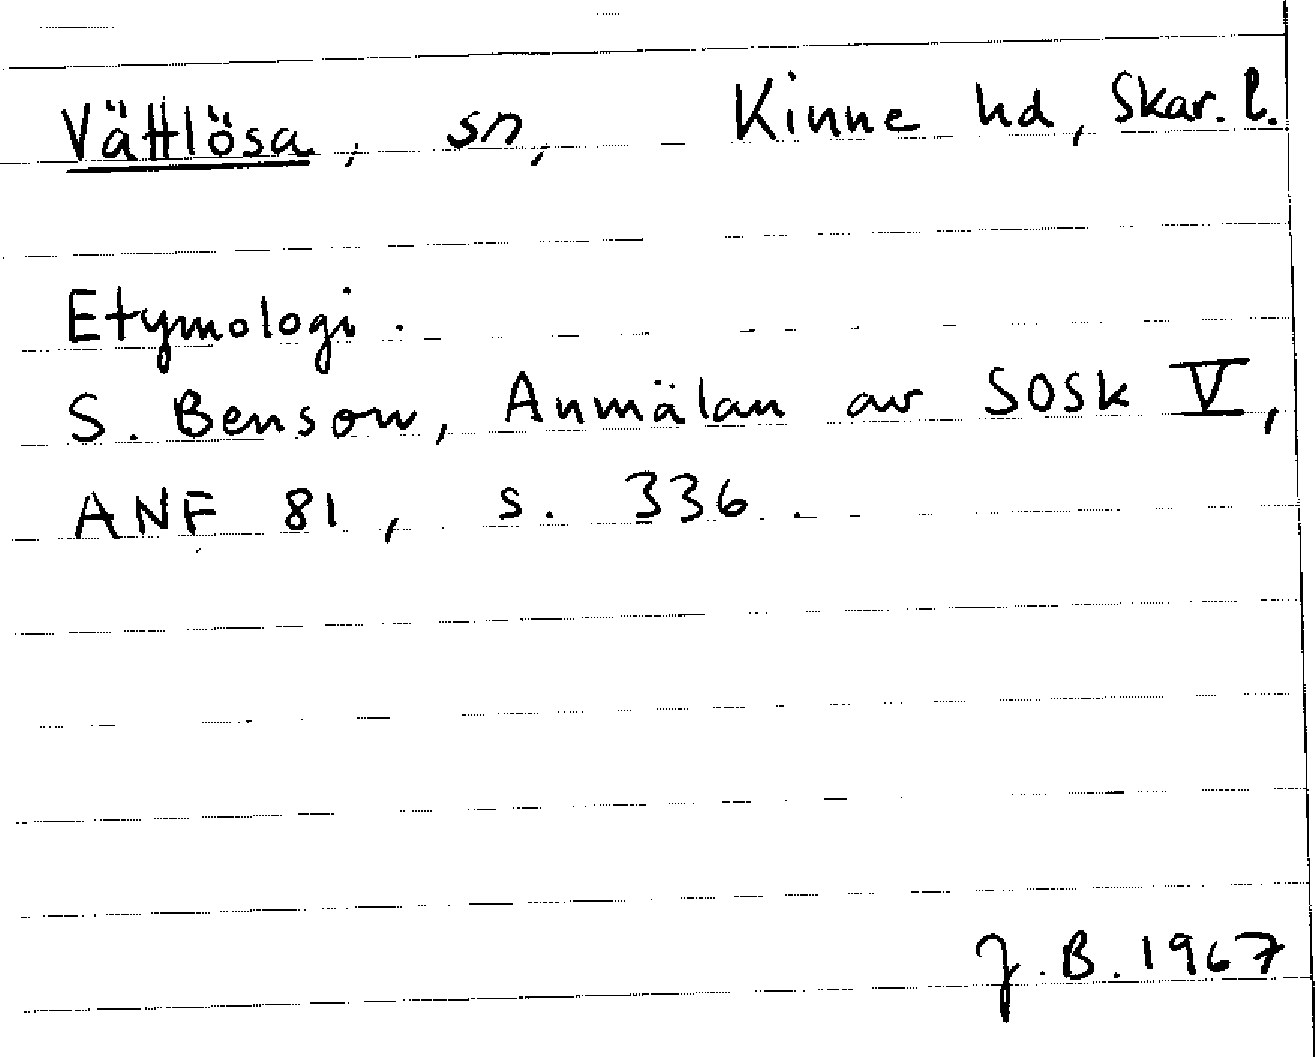 Vättlösa, sn, Kinne hd, Skar. l.
Etymologi.
S. Benson, Anmälan av SOSk V,
ANF 81, s. 336.
J. B. 1967